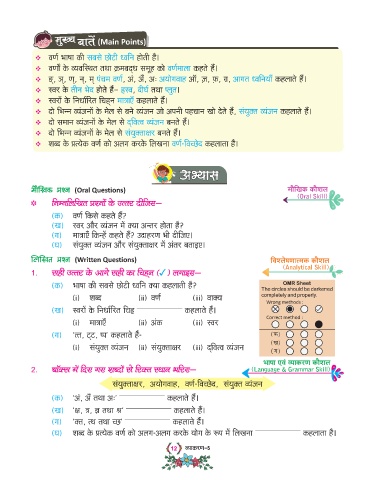 मुख्य बातें (Main Points)
❖ वर्ण भाषा की सबसे छोटी ध्वनि होती है।
❖ वर्णों के व्यवस्थित तथा क्रमबद्ध समूह को वर्णमाला कहते हैं।
❖ ङ्, ञ्, ण्, न्, म् पंचम वर्ण, अं, अँ, अः अयोगवाह ऑ, ज़, फ़, ग़, आगत ध्वनियाँ कहलाते हैं।
❖ स्वर के तीन भेद होते हैं– ह्रस्व, दीर्घ तथा प्लुत।
❖ स्वरों के निर्धारित चिह्न मात्राएँ कहलाते हैं।
❖ दो भिन्न व्यंजनों के मेल से बने व्यंजन जो अपनी पहचान खो देते हैं, संयुक्त व्यंजन कहलाते हैं।
❖ दो समान व्यंजनों के मेल से द्वित्व व्यंजन बनते हैं।
❖ दो भिन्न व्यंजनों के मेल से संयुक्ताक्षर बनते हैं।
❖ शब्द के प्रत्येक वर्ण को अलग करके लिखना वर्ण-विच्छेद कहलाता है।
अभ्यास
मौखिक प्रश्न (Oral Questions)
मौखिक कौशल
(Oral Skill)
❖ निम्नलिखित प्रश्नों के उत्तर दीजिए–
(क) वर्ण किसे कहते हैं?
(ख) स्वर और व्यंजन में क्या अन्तर होता है?
(ग) मात्राएँ किन्हें कहते हैं? उदाहरण भी दीजिए।
(घ) संयुक्त व्यंजन और संयुक्ताक्षर में अंतर बताइए।
लिखित प्रश्न (Written Questions)
विश्लेषणात्मक कौशल
(Analytical Skill)
1. सही उत्तर के आगे सही का चिह्न (✓) लगाइए–
(क) भाषा की सबसे छोटी ध्वनि क्या कहलाती है?
(i) शब्द (ii) वर्ण (ii) वाक्य
(ख) स्वरों के निर्धारित चिह्न ____ कहलाते हैं।
(i) मात्राएँ (ii) अंक (ii) स्वर
(ग) 'त्त, ट्ट, च्च' कहलाते हैं-
(i) संयुक्त व्यंजन (ii) संयुक्ताक्षर (ii) द्वित्व व्यंजन
OMR Sheet
The circles should be darkened
completely and properly.
Wrong methods :
Correct method :
(क)
(ख)
(ग)
भाषा एवं व्याकरण कौशल
(Language & Grammar Skill)
2. बॉक्स में दिए गए शब्दों से रिक्त स्थान भरिए–
संयुक्ताक्षर, अयोगवाह, वर्ण-विच्छेद, संयुक्त व्यंजन
(क) 'अं, अँ तथा अः' ____ कहलाते हैं।
(ख) 'क्ष, त्र, ज्ञ तथा श्र' ____ कहलाते हैं।
(ग) ____ कहलाते हैं।
(घ) शब्द के प्रत्येक वर्ण को अलग-अलग करके योग के रूप में लिखना ____ कहलाता है।
12 व्याकरण–5